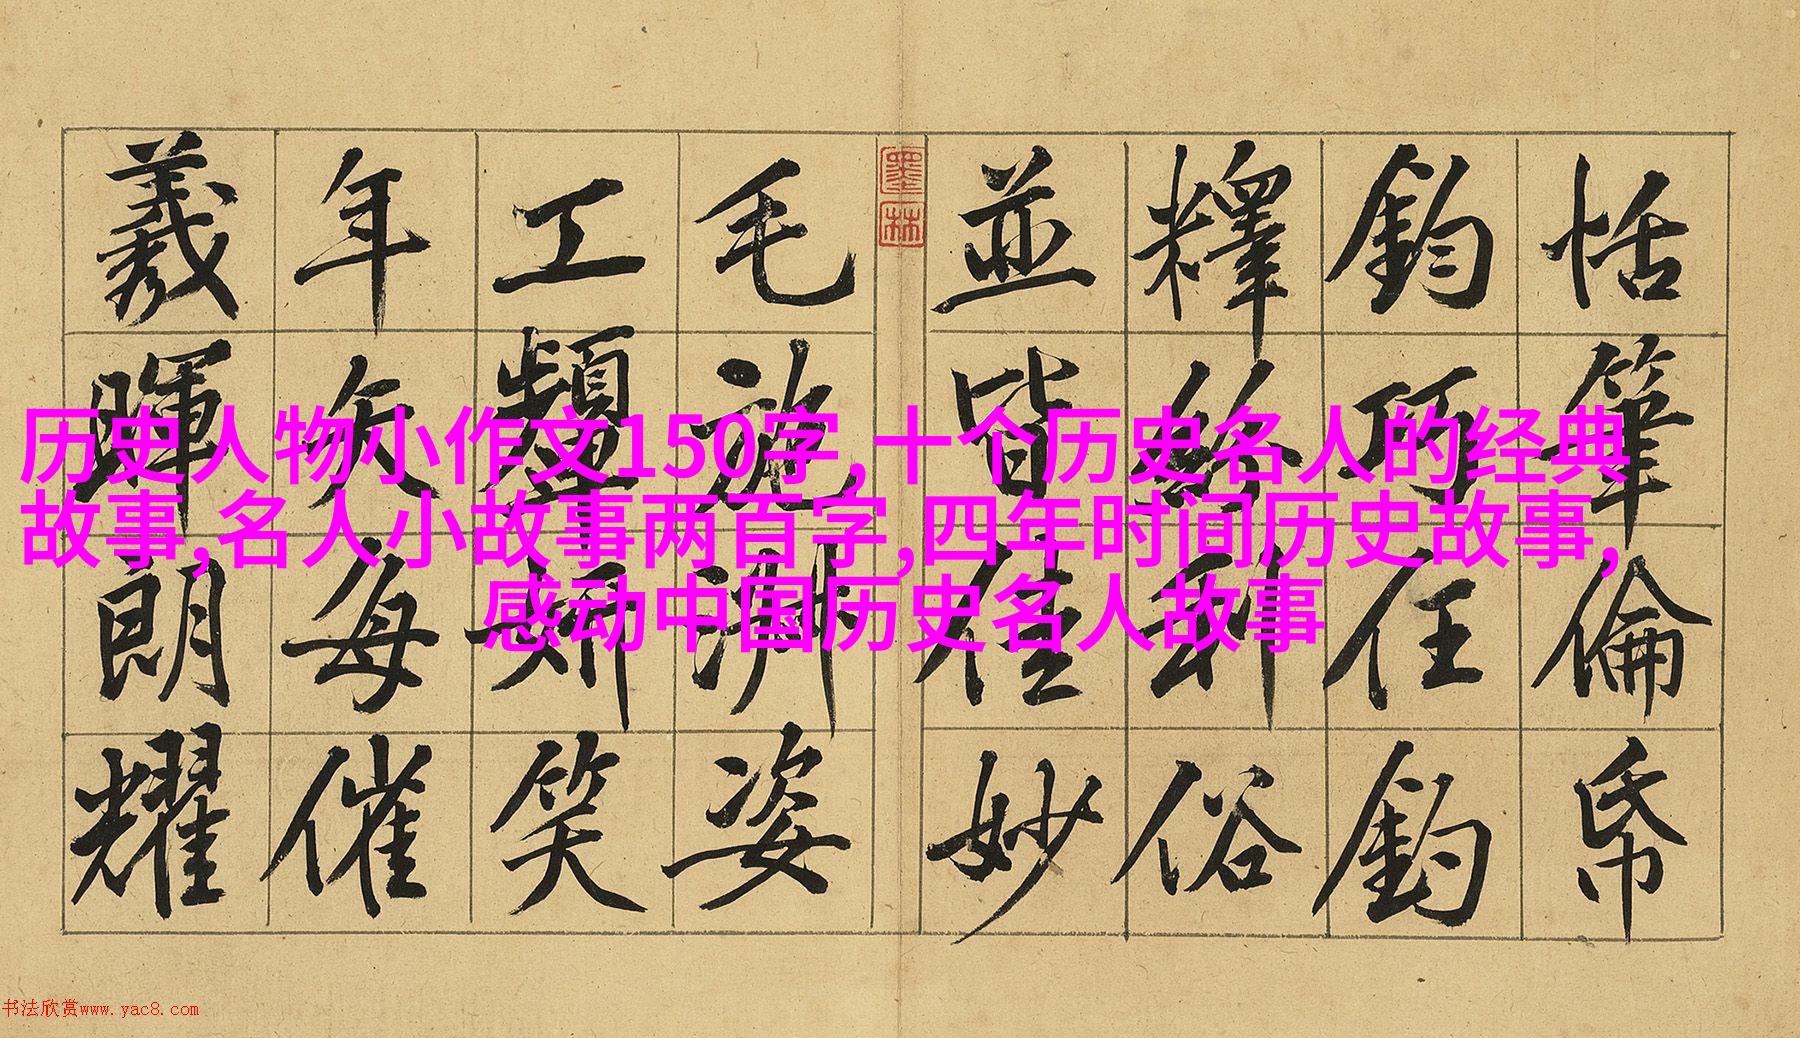 恬筆倫帋
鈞巧任釣
釋紛利俗
並皆佳妙
墨林
毛施淑姿
工顰妍笑
年矢每催
羲暉朗耀
历史人物小作文150字,十个历史名人的经典
故事,名人小故事两百字,四年时间历史故事,
感动中国历史名人故事
书法欣赏www.yac8.com